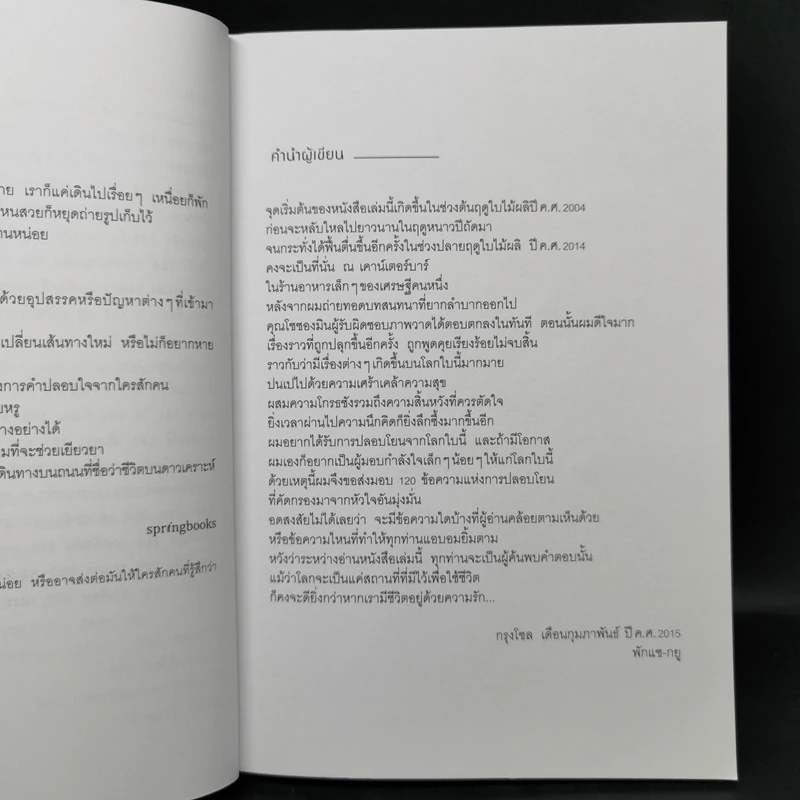 าย เราก็แค่เดินไปเรื่อยๆ เหนื่อยก็พัก
หนสวยก็หยุดถ่ายรูปเก็บไว้
านหน่อย
ด้วยอุปสรรคหรือปัญหาต่างๆที่เข้ามา
เปลี่ยนเส้นทางใหม่ หรือไม่ก็อยากหาย
งการคำปลอบใจจากใครสักคน
ยหรู
างอย่างได้
มที่จะช่วยเยียวยา
ดินทางบนถนนที่ชื่อว่าชีวิตบนดาวเคราะห์
springbooks
น่อย หรืออาจส่งต่อมันให้ใครสักคนที่รู้สึกว่า
คำนำผู้เขียน
จุดเริ่มต้นของหนังสือเล่มนี้เกิดขึ้นในช่วงต้นฤดูใบไม้ผลิปี ค.ศ. 2004
ก่อนจะหลับใหลไปยาวนานในฤดูหนาวปีถัดมา
จนกระทั่งได้ฟื้นตื่นขึ้นอีกครั้งในช่วงปลายฤดูใบไม้ผลิ ปี ค.ศ. 2014
คงจะเป็นที่นั่น ณ เคาน์เตอร์บาร์
ในร้านอาหารเล็กๆของเศรษฐีคนหนึ่ง
หลังจากผมถ่ายทอดบทสนทนาที่ยากลำบากออกไป
คุณโชซองมินผู้รับผิดชอบภาพวาดได้ตอบตกลงในทันที ตอนนั้นผมดีใจมาก
เรื่องราวที่ถูกปลุกขึ้นอีกครั้ง ถูกพูดคุยเรียงร้อยไม่จบสิ้น
ราวกับว่ามีเรื่องต่างๆเกิดขึ้นบนโลกใบนี้มากมาย
ปนเปไปด้วยความเศร้าเคล้าความสุข
ผสมความโกรธชังรวมถึงความสิ้นหวังที่ควรตัดใจ
ยิ่งเวลาผ่านไปความนึกคิดก็ยิ่งลึกซึ้งมากขึ้นอีก
ผมอยากได้รับการปลอบโยนจากโลกใบนี้ และถ้ามีโอกาส
ผมเองก็อยากเป็นผู้มอบกำลังใจเล็กๆน้อยๆให้แก่โลกใบนี้
ด้วยเหตุนี้ผมจึงขอส่งมอบ 120 ข้อความแห่งการปลอบโยน
ที่คัดกรองมาจากหัวใจอันมุ่งมั่น
อดสงสัยไม่ได้เลยว่า จะมีข้อความใดบ้างที่ผู้อ่านคล้อยตามเห็นด้วย
หรือข้อความไหนที่ทำให้ทุกท่านแอบอมยิ้มตาม
หวังว่าระหว่างอ่านหนังสือเล่มนี้ ทุกท่านจะเป็นผู้ค้นพบคำตอบนั้น
แม้ว่าโลกจะเป็นแค่สถานที่ที่มีไว้เพื่อใช้ชีวิต
ก็คงจะดียิ่งกว่าหากเรามีชีวิตอยู่ด้วยความรัก...
กรุงโซล เดือนกุมภาพันธ์ ปี ค.ศ. 2015
พักแช-กยู